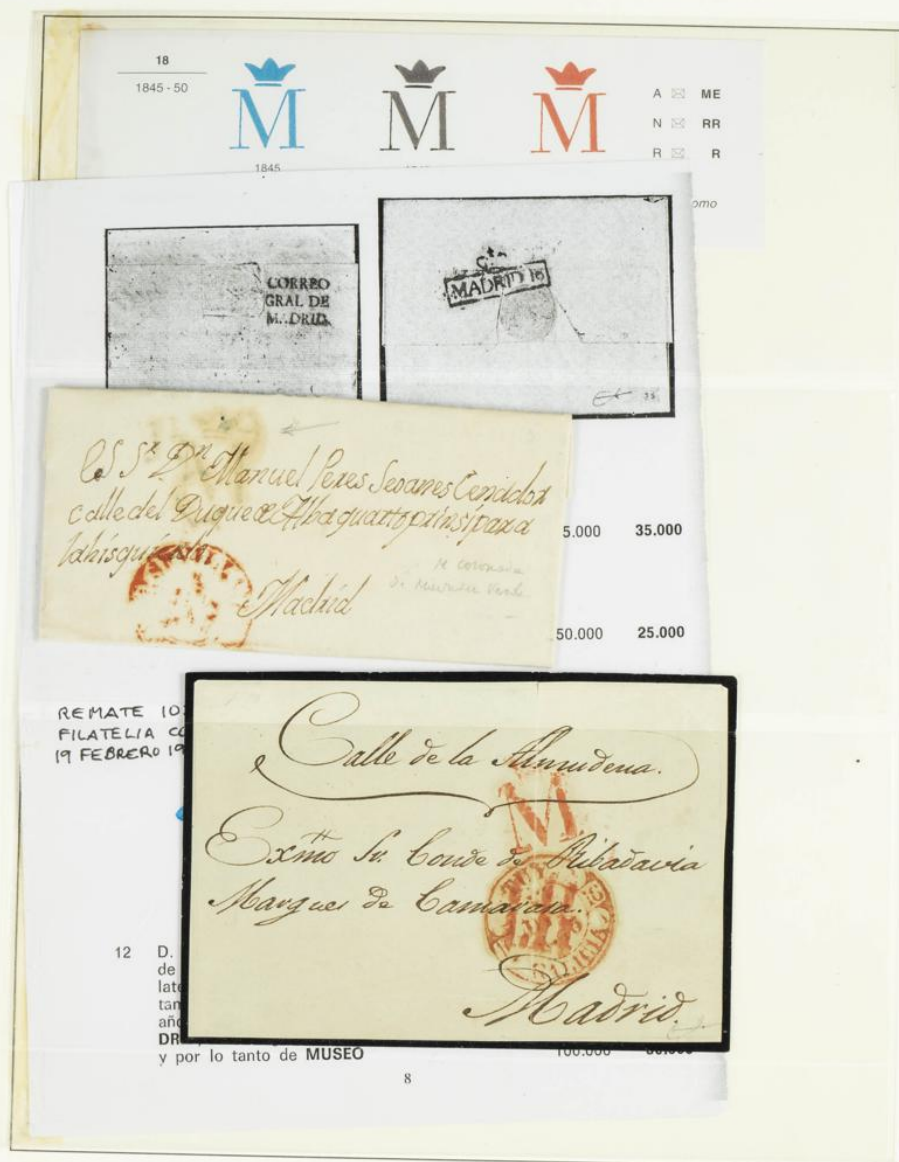 18
1845 - 50
M M M
1845
A ME
N RR
R R
omo
CORREO
GRAL DE
M. DRID
MADRID 16
Sr. Dn Manuel Peres Seoanes Cenador
calle del Duque Alba quarto prinsipara
Madrid
M coronada
De
5.000 35.000
50.000 25.000
REMATE 10
FILATELIA CO
19 FEBRERO 19
Calle de la Almudena.
M
Exmo Sr. Conde de Ribadavia
Marques de Camarasa.
TUY
GALICIA
Madrid.
12 D.
de
late
tan
año
DR
y por lo tanto de MUSEO
100.000
8